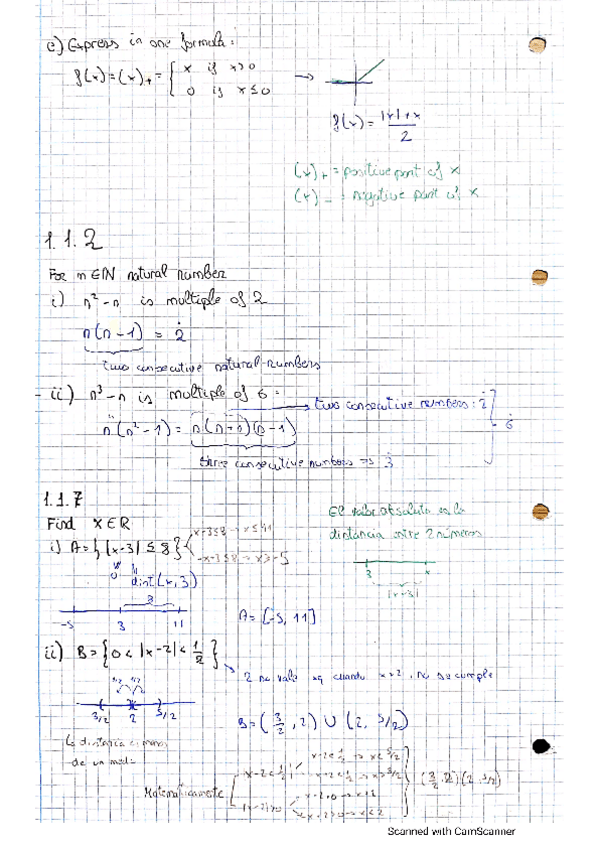 e) Express in one formula:
f(x)=(x)₊ = { x if x>0
0 if x≤0
f(x)= |x|+x / 2
(x)₊ = positive part of x
(x)₋ = negative part of x
1.1.2
For n∈ℕ natural number
i) n²-n is multiple of 2
n(n-1) = 2̇
two consecutive natural numbers
ii) n³-n is multiple of 6:
two consecutive numbers: 2̇
6̇
n(n²-1) = n(n+1)(n-1)
three consecutive numbers → 3̇
1.1.7
Find x∈ℝ
El valor absoluto es la
distancia entre 2 números
3 x
|x-3|
i) A={ |x-3| ≤ 8 }
x-3≤8 → x≤11
-x-3≤8 → x>-5
0 dist(x,3)
8
-5 3 11
A=[-5, 11]
ii) B={ 0<|x-2|<1/2 }
2 no vale xq cuando x=2, no se cumple
1/2 1/2
3/2 2 5/2
B=(3/2, 2) ∪ (2, 5/2)
La distancia es menos
de un med-
Matemáticamente
x-2<1/2 → x<5/2
x-2<1/2
-x-2<1/2 → x>3/2
|x-2|>0
x-2>0 → x>2
x-2>0 → x<2
(3/2, 2)(2, 5/2)
Scanned with CamScanner